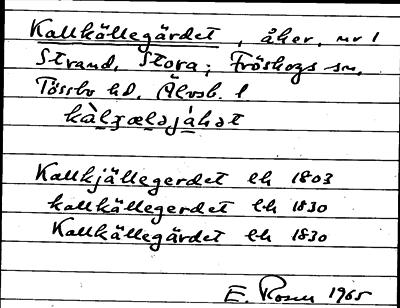 Kallkällegärdet, åker, nr 1
Strand, Stora; Fröskogs sn,
Tössbo hd. Älvsb. l
Kallkjällegerdet lh 1803
kallkällegerdet lh 1830
Kallkällegärdet lh 1830
E. Rosen 1965